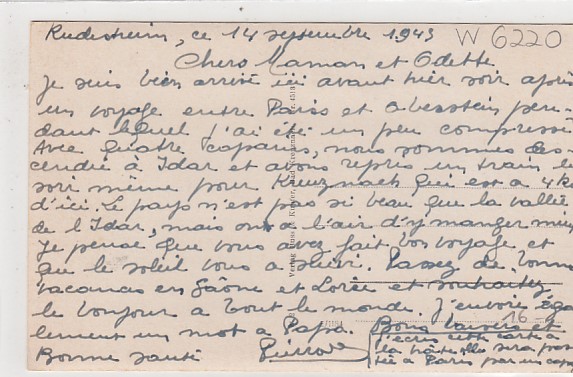 Rudesheim, ce 14 septembre 1943
W 6220
Chers Maman et Odette
Je suis bien arrivé ici avant hier soir après
un voyage entre Paris et Oberstein pen-
dant lequel j'ai été un peu compressé
Avec quatre copains, nous sommes des-
cendus à Idar et avons repris un train le
soir même pour Kreuznach qui est à 4 k
d'ici. Le pays n'est pas si beau que la vallée
de l'Idar, mais on a l'air d'y manger mieu
Je pense que vous avez fait bon voyage et
que le soleil vous a suivi. Passez de bonn
vacances en Saône et Loire et souhaitez
le bonjour à tout le monde. J'envoie éga
lement un mot à Papa. Bons baisers et
Bonne santé Pierrot
j'écris cette carte à
la hâte elle sera pos
tée à Paris par un cop
16-
Verlag